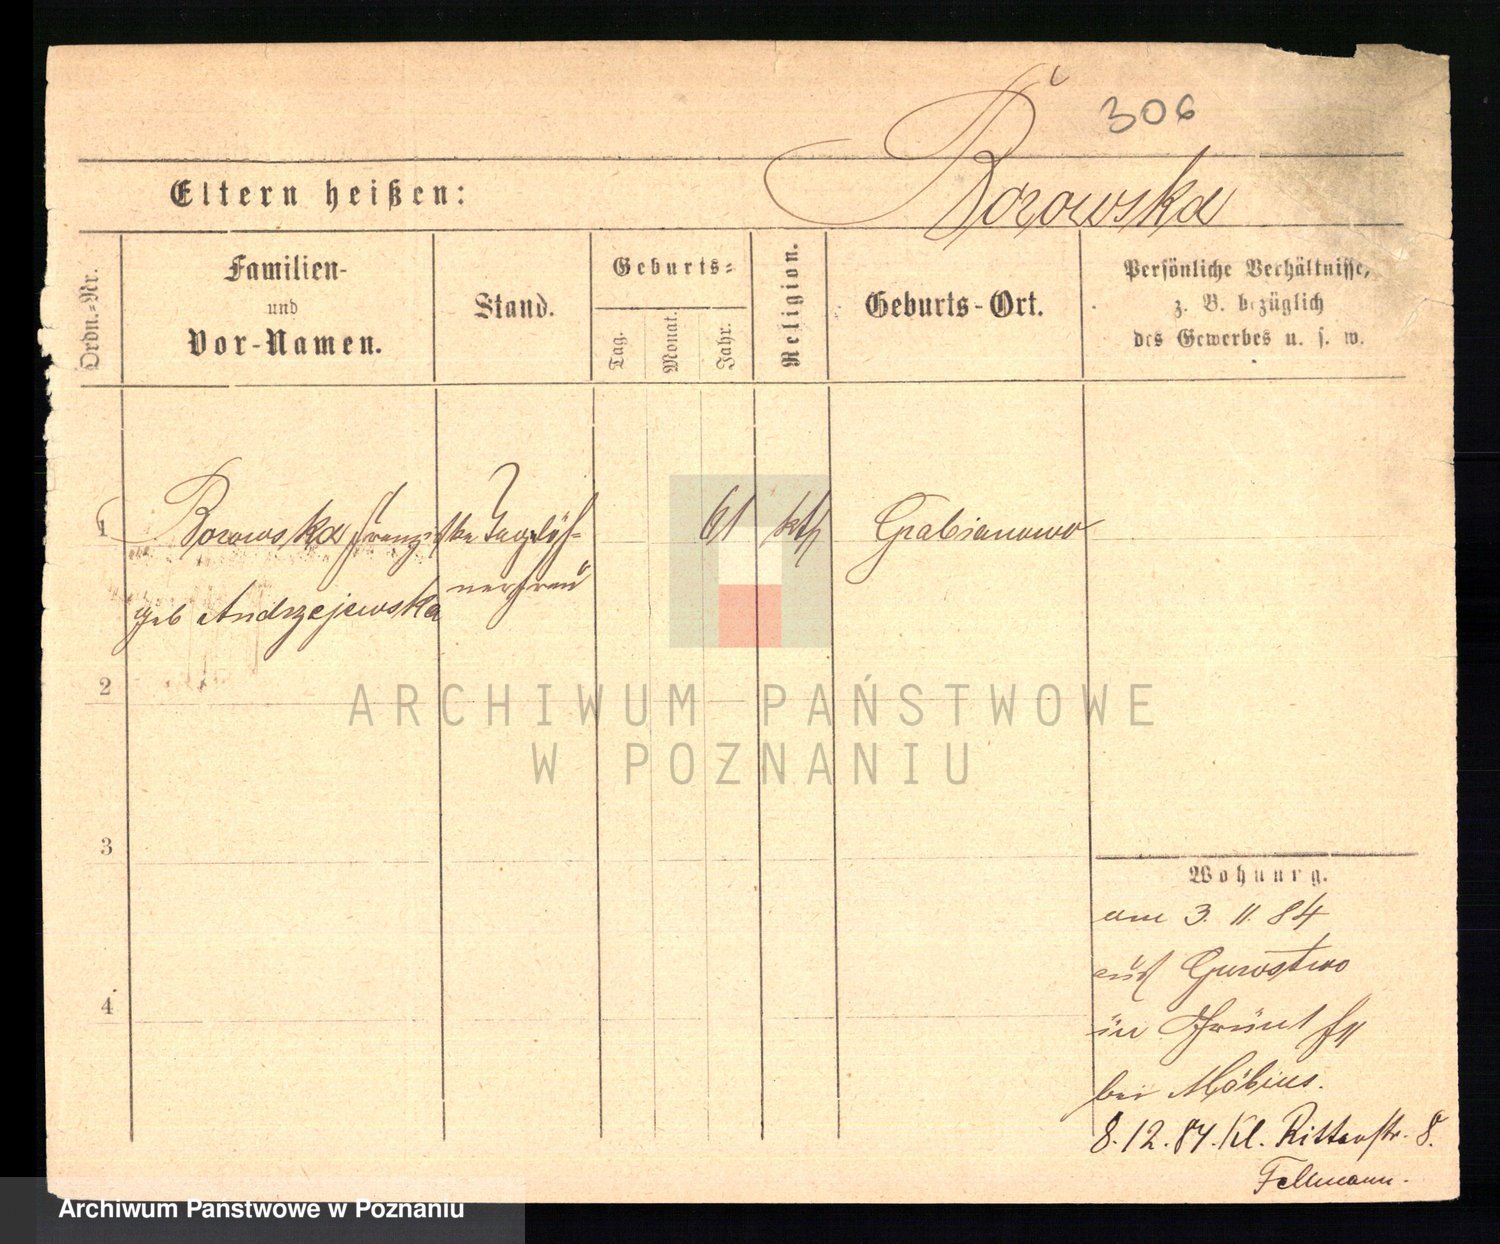 306
Borowska
Eltern heißen:
Ordn.-Nr.
Familien-
und
Vor-Namen.
Stand.
Geburts-
Tag.
Monat.
Jahr.
Religion.
Geburts-Ort.
Persönliche Verhältnisse,
z. B. bezüglich
des Gewerbes u. s. w.
1 Borowska Franziska Tagelöh- 61 kth Grabianowo
nerfrau
geb Andrzejewska
2
3
4
Wohnung.
am 3. 11. 84
aus Gurostwo
in
bei Möbius.
8.12.84. Kl. Ritterstr. 8.
Fellmann.
ARCHIWUM PAŃSTWOWE
W POZNANIU
Archiwum Państwowe w Poznaniu